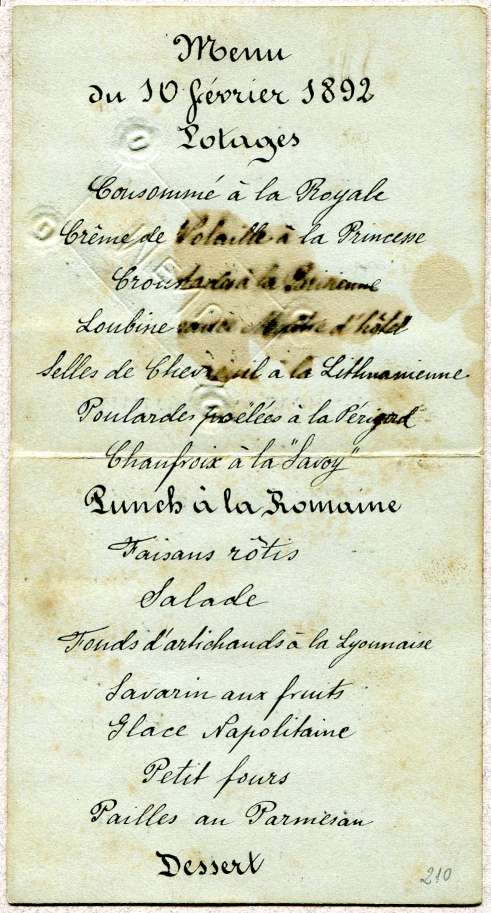 Menu
du 10 février 1892
Potages
Consommé à la Royale
Crême de Volaille à la Princesse
Croustades à la Parisienne
Loubine sauce Maître d'hôtel
Selles de Chevreuil à la Lithuanienne
Poulardes poëlées à la Périgord
Chaufroix à la "Savoy"
Punch à la Romaine
Faisans rôtis
Salade
Fonds d'artichauds à la Lyonnaise
Savarin aux fruits
Glace Napolitaine
Petit fours
Pailles au Parmesan
Dessert
210